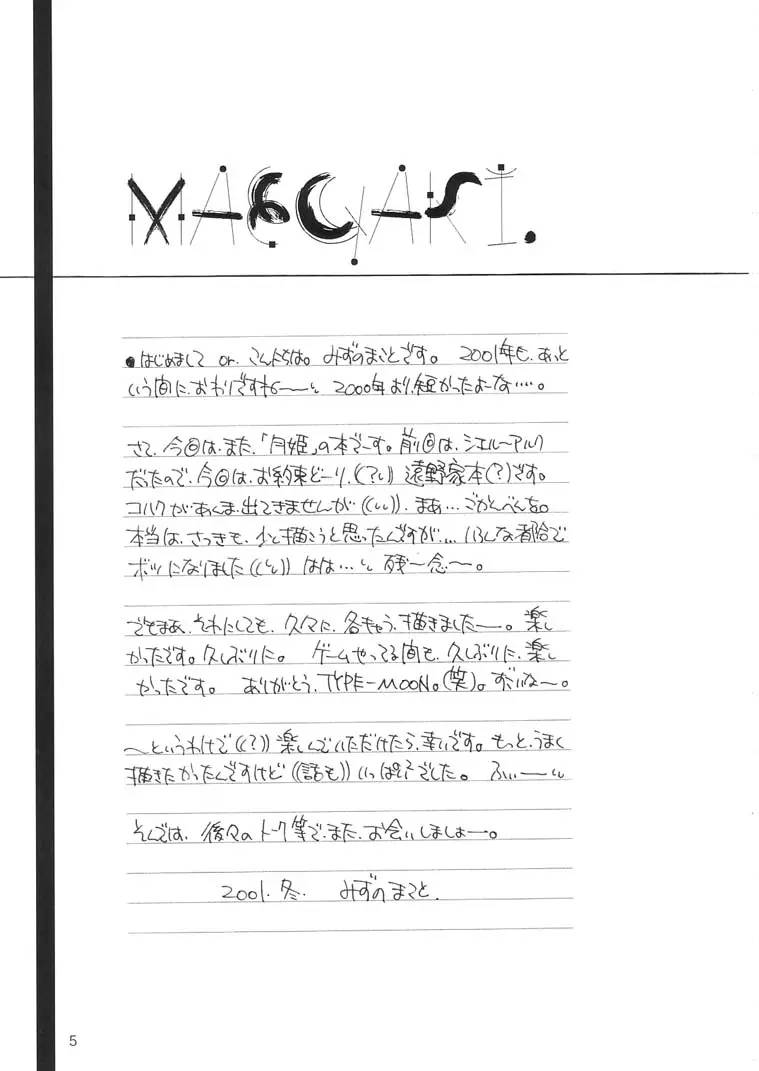 MAEGAKI.
●はじめまして or. こんにちは。みずのまことです。2001年も、あっと
いう間に、おわりですねぇ〜〜〜 2000年より、短かったよーな‥‥。
さて、今回は、また、「月姫」の本でーす。前回は、シエルーアルク
だったので、今回は、お約束どーり、(?) 遠野家本(?)です。
コハクがあんま出てきませんが(()) 、まあ…ごかんべんを。
本当は、さっきも、少し描こうと思ったんですが… いろんな都合で
ボツになりました(()) はは…残〜念〜。
でもまあ、それにしても、久々に、各きゃら、描きましたー。楽し
かったです。久しぶりに。ゲームやってる間も、久しぶりに、楽し
かったです。ありがとう、TYPE-MOON。(笑)。すごいな〜。
〜というわけで((?)) 楽しんでいただけたら、幸いです。もっと、うまく
描きたかったんですけど((話も)) いっぱいでした。ふぃー
そんでは、後々のトーク等で、また、お会いしましょー。
2001. 冬. みずのまこと.
5